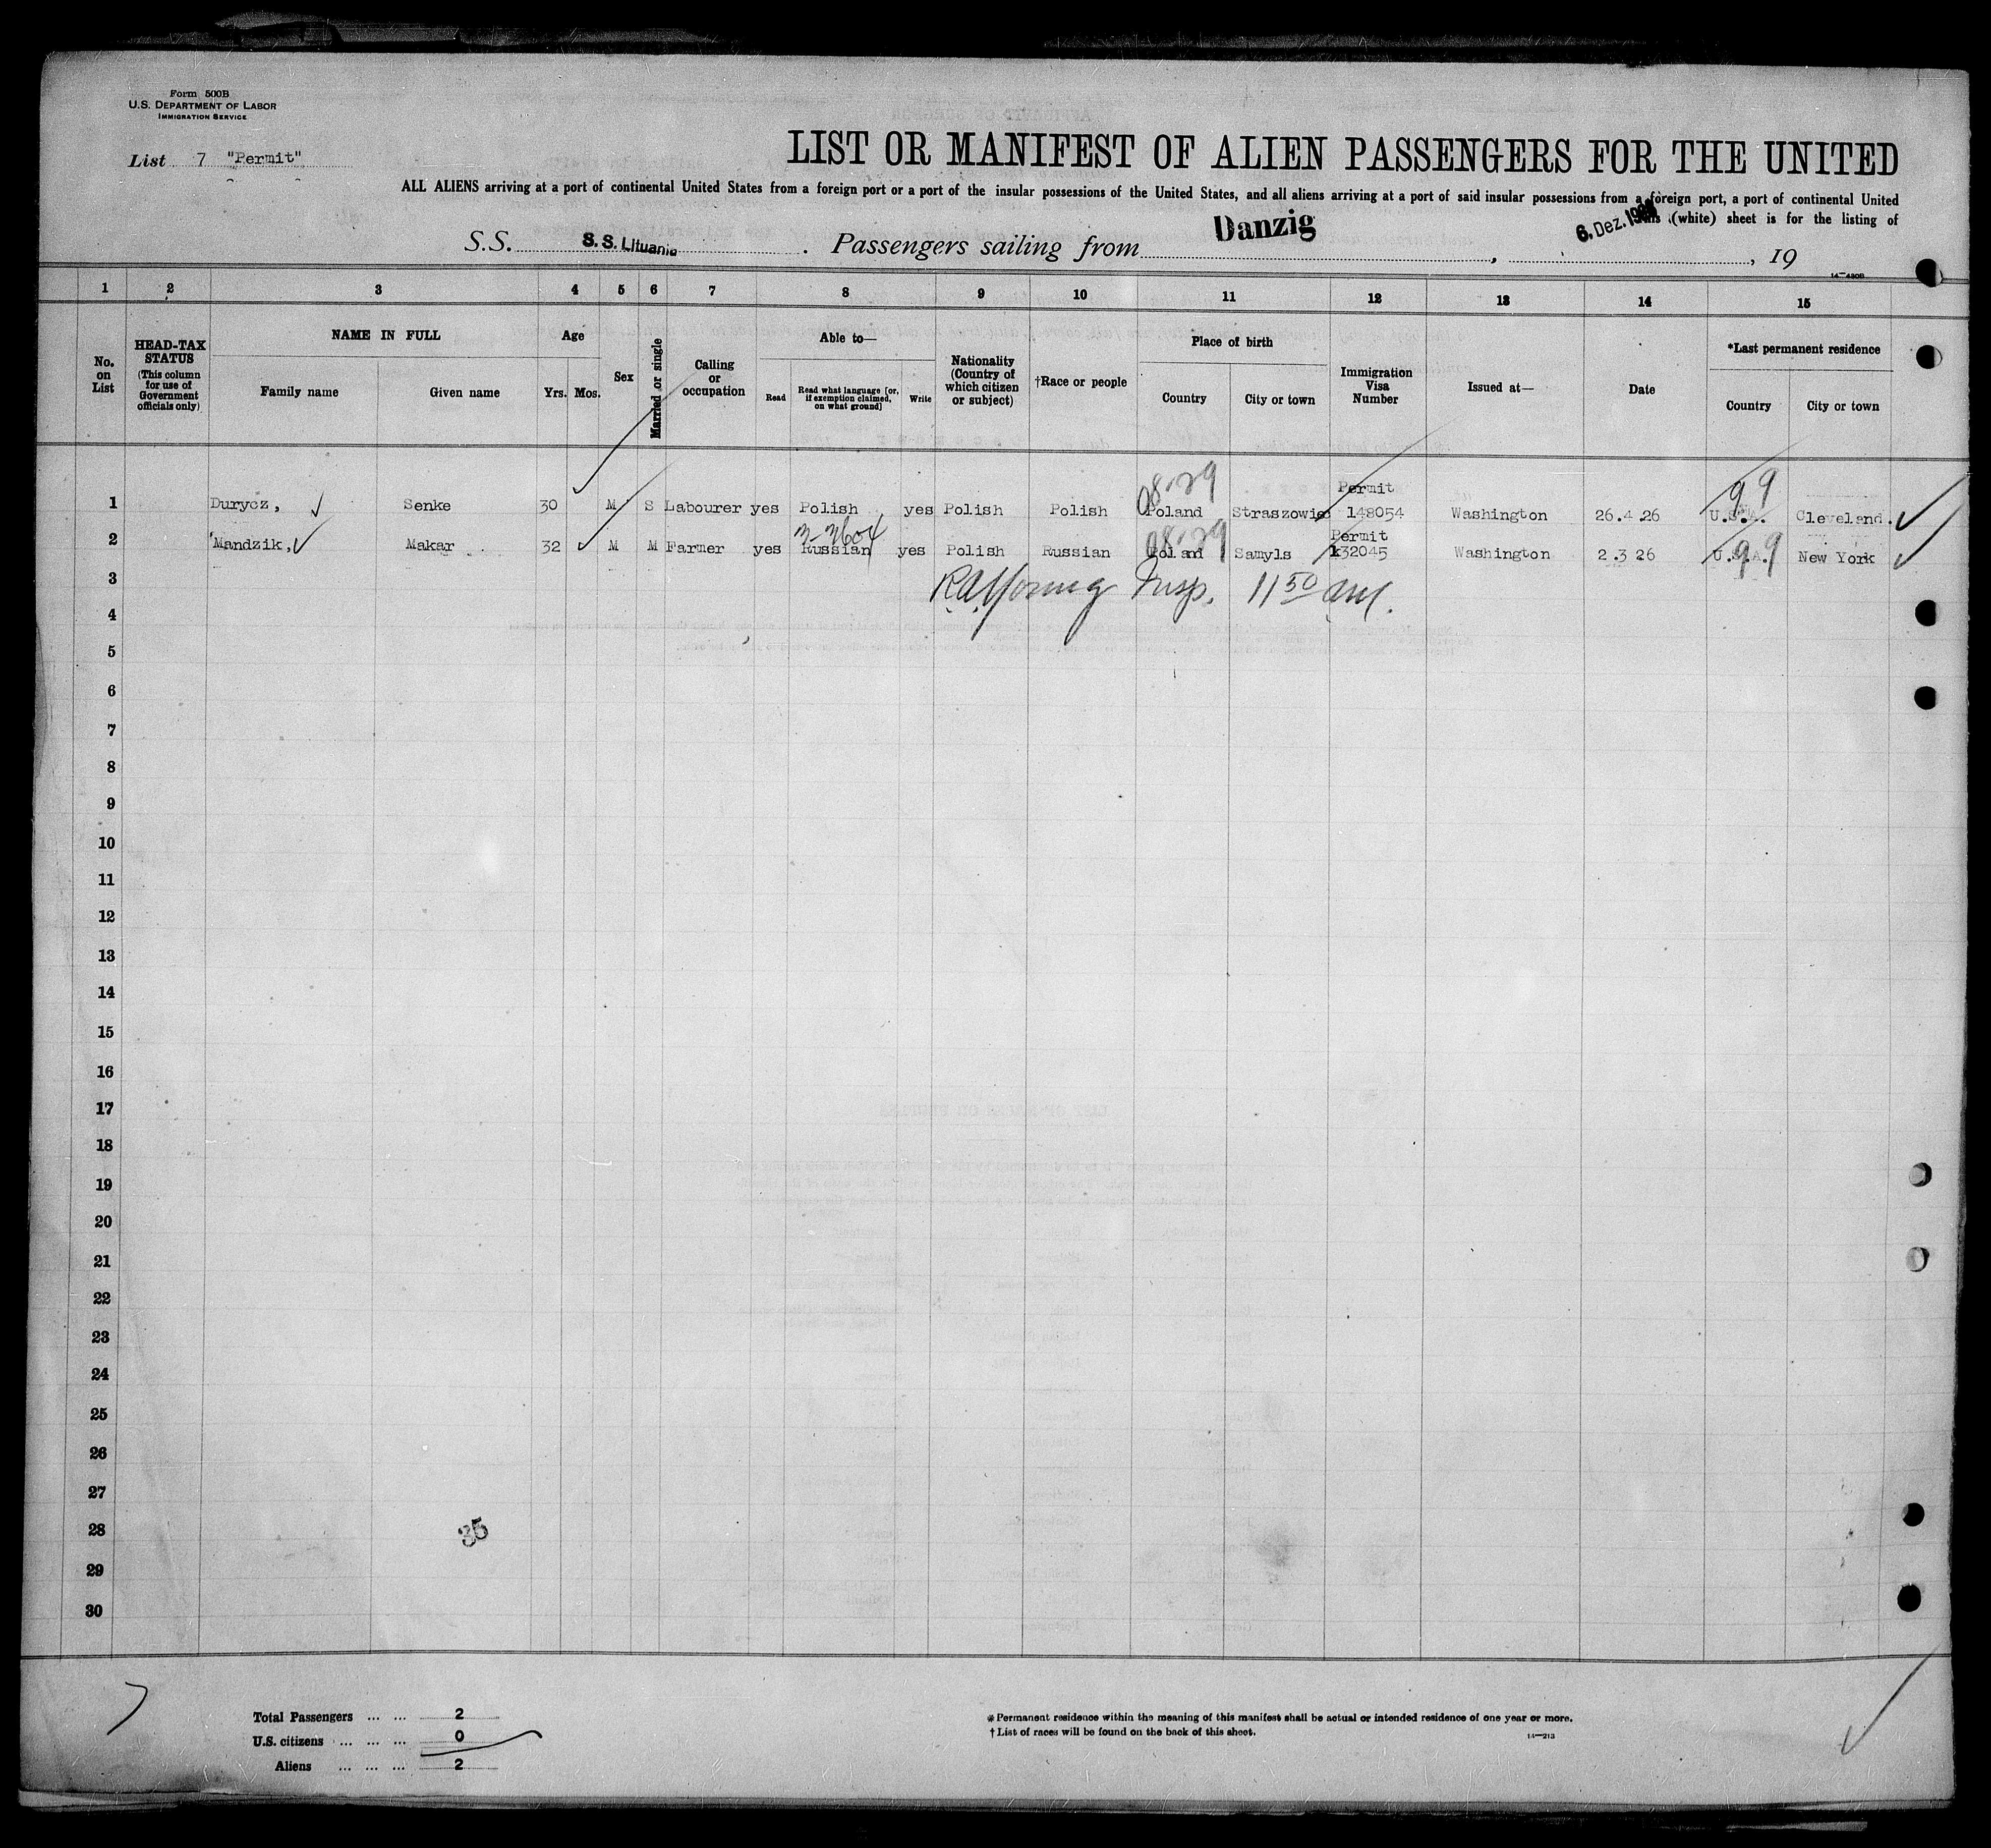 Form 500B
U.S. DEPARTMENT OF LABOR
IMMIGRATION SERVICE
List 7 "Permit"
LIST OR MANIFEST OF ALIEN PASSENGERS FOR THE UNITED
ALL ALIENS arriving at a port of continental United States from a foreign port or a port of the insular possessions of the United States, and all aliens arriving at a port of said insular possessions from a foreign port, a port of continental United
(white) sheet is for the listing of
S.S. S.S. Lituania . Passengers sailing from Danzig , 6. Dez. , 19
14—480B
1 2 3 4 5 6 7 8 9 10 11 12 13 14 15
No. on List
HEAD-TAX STATUS (This column for use of Government officials only)
NAME IN FULL
Family name
Given name
Age
Yrs. Mos.
Sex
Married or single
Calling or occupation
Able to—
Read
Read what language [or, if exemption claimed, on what ground]
Write
Nationality (Country of which citizen or subject)
†Race or people
Place of birth
Country
City or town
Immigration Visa Number
Issued at—
Date
*Last permanent residence
Country
City or town
08-29 Permit 99
1 Durycz, Senke 30 M S Labourer yes Polish yes Polish Polish Poland Straszowie 148054 Washington 26.4.26 U.S.A. Cleveland.
3-2604 08-29 Permit 99
2 Mandzik, Makar 32 M M Farmer yes Russian yes Polish Russian Poland Samyls 132045 Washington 2.3 26 U.S.A. New York
3
R.A. Young Insp. 11 50 am.
4
5
6
7
8
9
10
11
12
13
14
15
16
17
18
19
20
21
22
23
24
25
26
27
28
35
29
30
Total Passengers ... ... 2
U.S. citizens ... ... ... 0
Aliens ... ... ... 2
* Permanent residence within the meaning of this manifest shall be actual or intended residence of one year or more.
† List of races will be found on the back of this sheet.
14—213